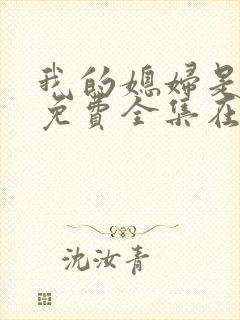 我的媳婦是
免費全集在
沈汝青